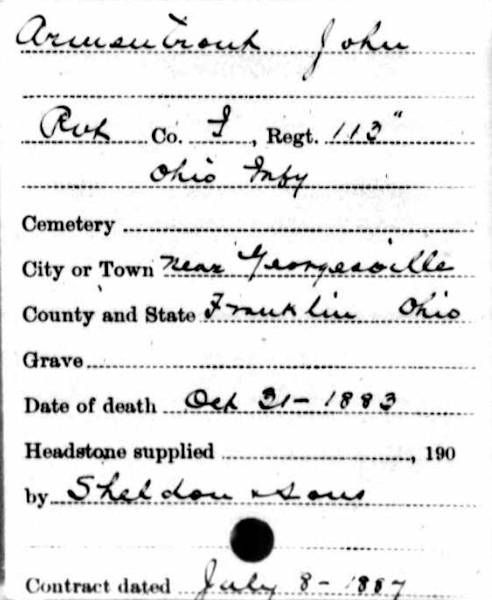 Armentrout John
Pvt Co. I, Regt. 113"
Ohio Infy
Cemetery
City or Town near Georgesville
County and State Franklin Ohio
Grave
Date of death Oct 21-1883
Headstone supplied , 190
by Sheldon & Sons
Contract dated July 8-1887